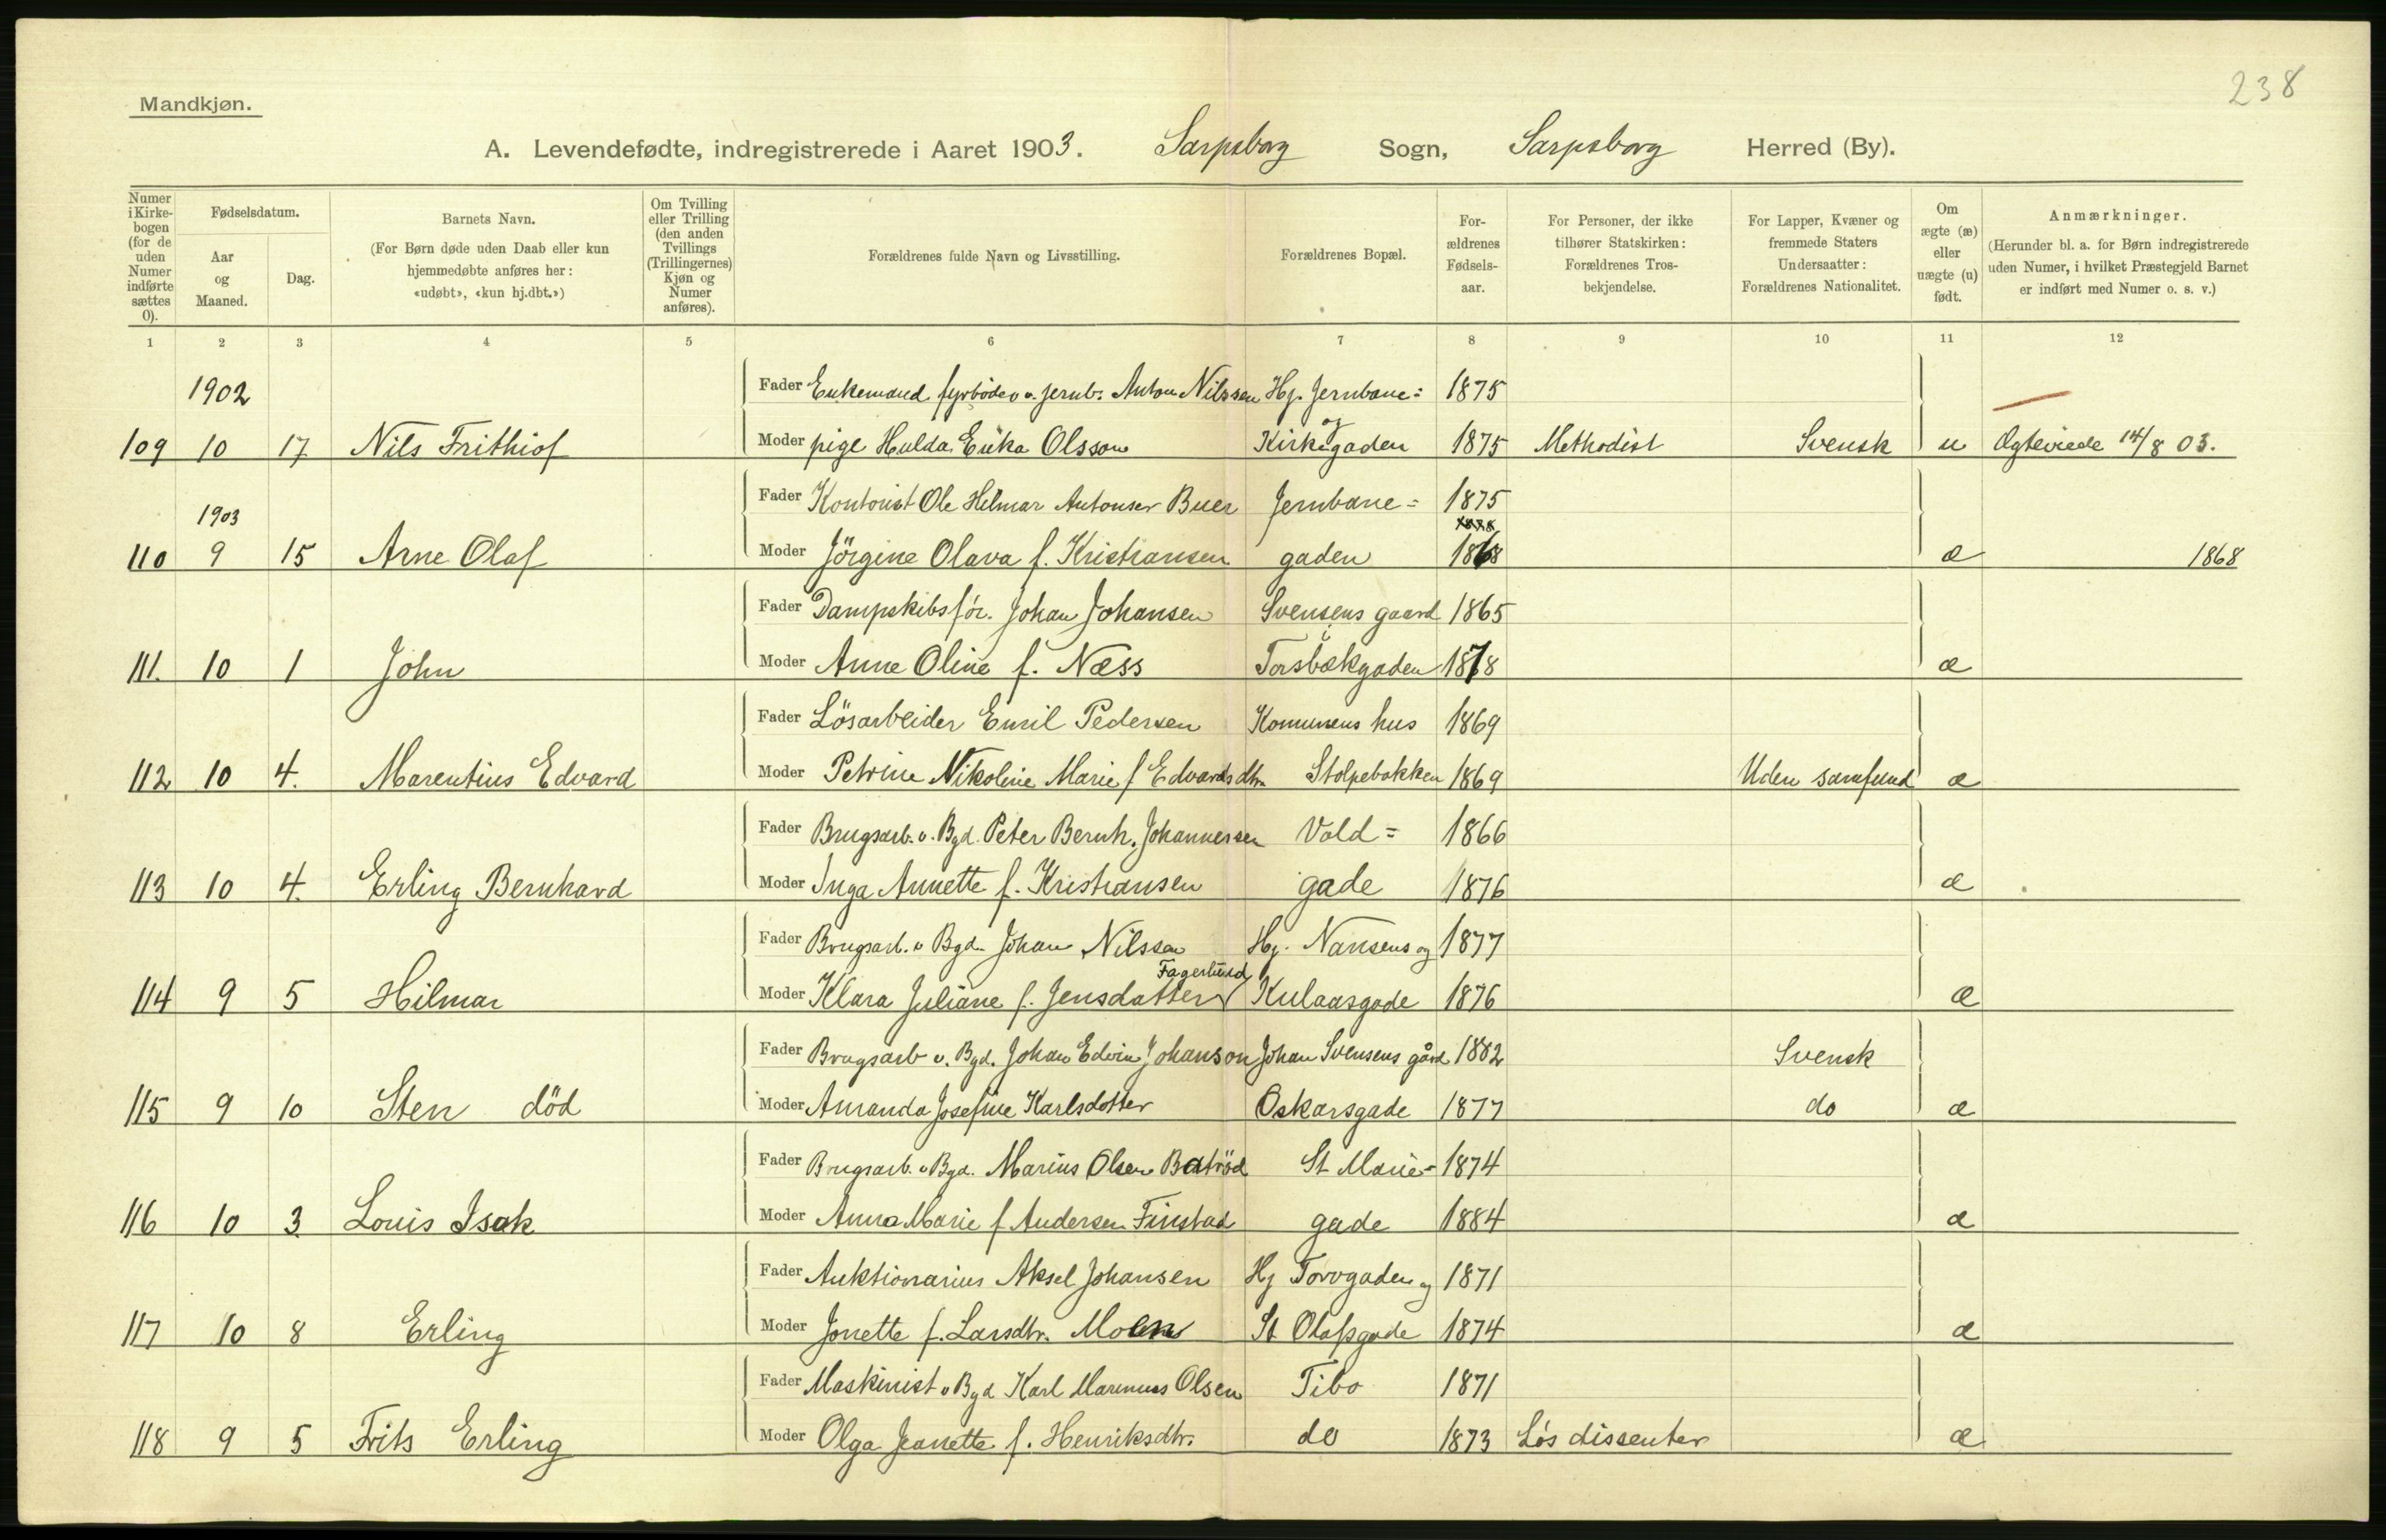 238
Mandkjøn.
A. Levendefødte, indregistrerede i Aaret 1903. Sarpsborg Sogn, Sarpsborg Herred (By).
Numer i Kirkebogen (for de uden Numer indførte sættes 0).
Fødselsdatum.
Aar og Maaned.
Dag.
Barnets Navn.
(For Børn døde uden Daab eller kun hjemmedøbte anføres her: «udøbt», «kun hj.dbt.»)
Om Tvilling eller Trilling (den anden Tvillings (Trillingernes) Kjøn og Numer anføres).
Forældrenes fulde Navn og Livsstilling.
Forældrenes Bopæl.
Forældrenes Fødselsaar.
For Personer, der ikke tilhører Statskirken: Forældrenes Trosbekjendelse.
For Lapper, Kvæner og fremmede Staters Undersaatter: Forældrenes Nationalitet.
Om ægte (æ) eller uægte (u) født.
Anmærkninger.
(Herunder bl. a. for Børn indregistrerede uden Numer, i hvilket Præstegjeld Barnet er indført med Numer o. s. v.)
1 2 3 4 5 6 7 8 9 10 11 12
1902 Fader Enkemand fyrbøder v. jernb. Anton Nilssen Hj. Jernbane= 1875
109 10 17 Nils Frithiof Moder pige Hulda Erika Olsson og Kirkegaden 1875 Methodist Svensk u Ægteviede 14/8 03.
1903 Fader Kontorist Ole Hilmar Antonsen Buer Jernbane= 1875
110 9 15 Arne Olaf Moder Jörgine Olava f. Kristiansen gaden 1868 æ 1868
Fader Dampskibsför. Johan Johansen Svensens gaard 1865
111. 10 1 John Moder Anne Oline f. Næss Torsbækgaden 1878 æ
Fader Lösarbeider Emil Pedersen Komunens hus 1869
112 10 4. Marentius Edvard Moder Petrine Nikoline Marie f Edvardsdtr. Stolpebakken 1869 Uden samfund æ
Fader Brugsarb. v. Bgd. Peter Bernh. Johannessen Vold= 1866
113 10 4. Erling Bernhard Moder Inga Annette f. Kristiansen gade 1876 æ
Fader Brugsarb. v Bgd. Johan Nilssen Hj. Nansens og 1877
114 9 5 Hilmar Moder Klara Juliane f. Jensdatter Fagerlund Kulaasgade 1876 æ
Fader Brugsarb v. Bgd. Johan Edvin Johanson Johan Svensens gård 1882 Svensk
115 9 10 Sten död Moder Amanda Josefine Karlsdotter Oskarsgade 1877 do æ
Fader Brugsarb. v Bgd. Marius Olsen Batröd St Marie= 1874
116 10 3. Louis Isak Moder Anna Marie f Andersen Finstad gade 1884 æ
Fader Auktionarius Aksel Johansen Hj Torvgaden og 1871
117 10 8 Erling Moder Jonette f. Larsdtr. Moen St Olafsgade 1874 æ
Fader Maskinist v Bgd Karl Marinus Olsen Tibo 1871
118 9 5 Frits Erling Moder Olga Jeanette f. Henriksdtr. do 1873 Lös dissenter æ